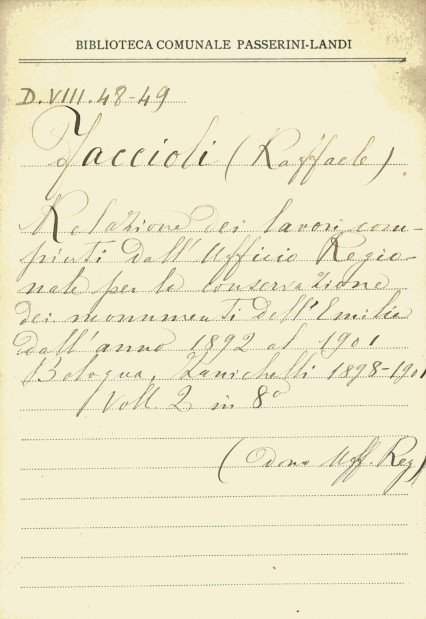 BIBLIOTECA COMUNALE PASSERINI-LANDI
D.VIII.48-49
Faccioli (Raffaele)
Relazione dei lavori com-
piuti dall'Ufficio Regio-
nale per la conservazione
dei monumenti dell'Emilia
dall'anno 1892 al 1901
Bologna, Zanichelli 1898-1901
Voll. 2 in 8°
(Dono Uff. Reg)